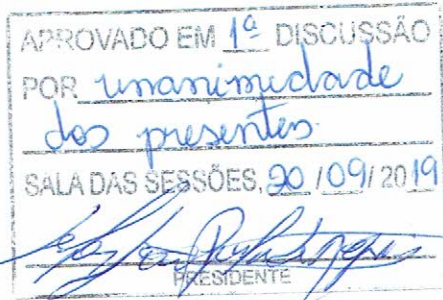 APROVADO EM 1ª DISCUSSÃO
POR unanimidade
dos presentes.
SALA DAS SESSÕES, 20 / 09 / 2019
PRESIDENTE